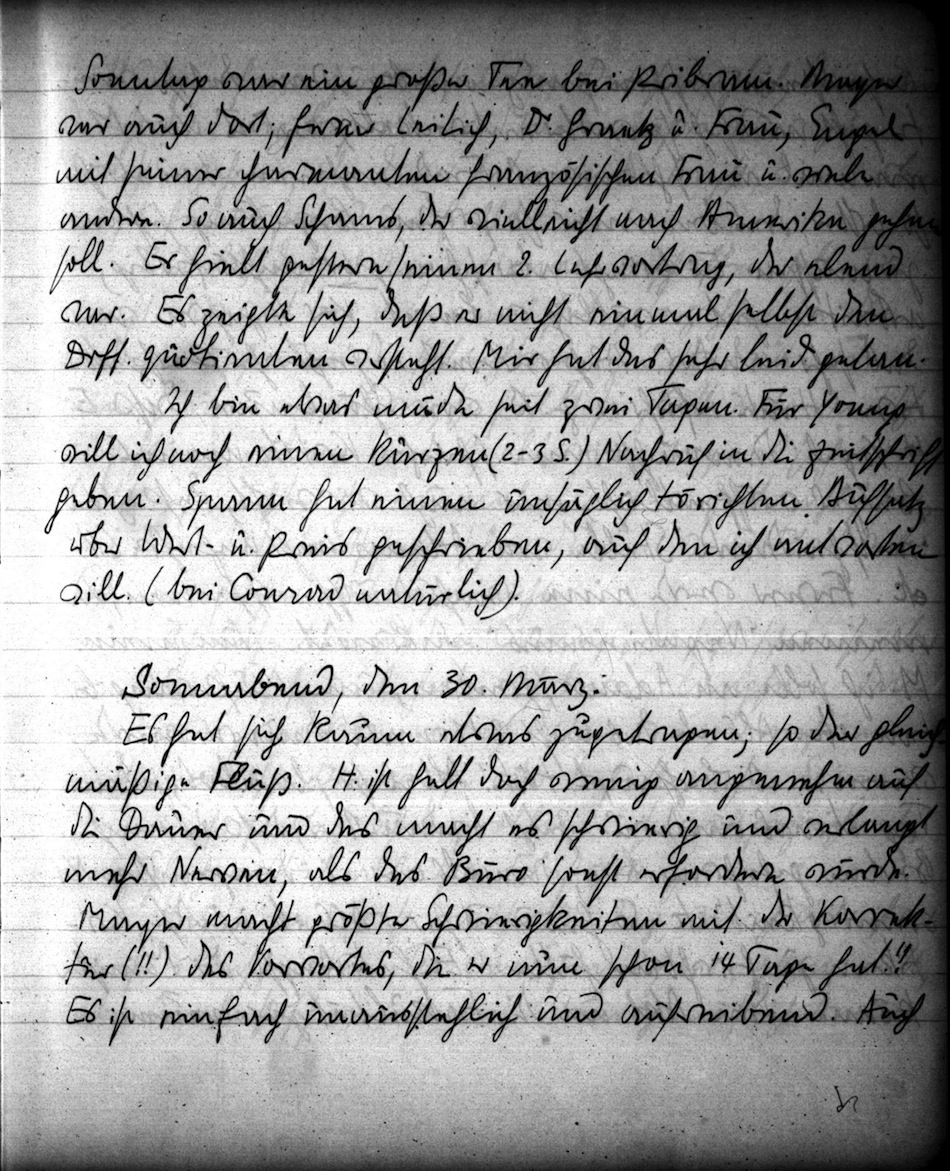 Sonntag war ein großer Tee bei Pribram. Mayer
war auch dort; ferner Leitich, Dr. Graetz u. Frau, Engel
mit seiner charmanten französischen Frau u. viele
andere. So auch Schams, der vielleicht nach Amerika gehen
soll. Er hielt gestern seinen 2. Lehrvortrag, der elend
war. Es zeigte sich, daß er nicht einmal selbst den
Diff. quotienten versteht. Mir hat das sehr leid getan.
Ich bin etwas müde seit zwei Tagen. Für Young
will ich noch einen kurzen (2-3 S.) Nachruf in die Zeitschrift
geben. Spann hat einen unsäglich törichten Aufsatz
über Wert- u. Preis geschrieben, auf den ich antworten
will. (bei Conrad natürlich).
Sonnabend, den 30. März.
Es hat sich kaum etwas zugetragen; so der gleich
mäßige Fluß. H. ist halt doch wenig angenehm auf
die Dauer und das macht es schwierig und verlangt
mehr Nerven, als das Büro sonst erfordern würde.
Mayer macht größte Schwierigkeiten mit der Korrek-
tur (!!) des Vorwortes, die er nun schon 14 Tage hat!!
Es ist einfach unausstehlich und aufreibend. Auch